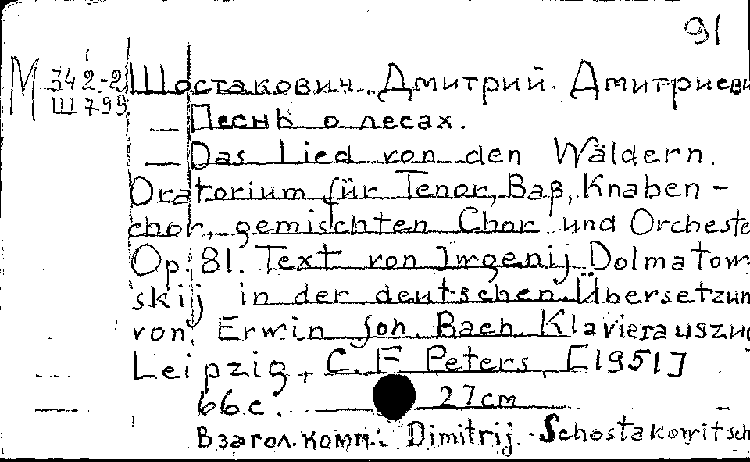 91
М 342-2 Шостакович, Дмитрий Дмитриеви
Ш 799
— Песнь о лесах.
— Das Lied von den Wäldern.
Oratorium für Tenor, Baß, Knaben-
chor, gemischten Chor und Orcheste
Op. 81. Text von Jwgenij Dolmatow-
skij in der deutschen Übersetzun
von Erwin Joh. Bach. Klavierauszug
Leipzig, C. F. Peters, [1951]
66 с. 27cm
В загол. комп.: Dimitrij Schostakowitsch